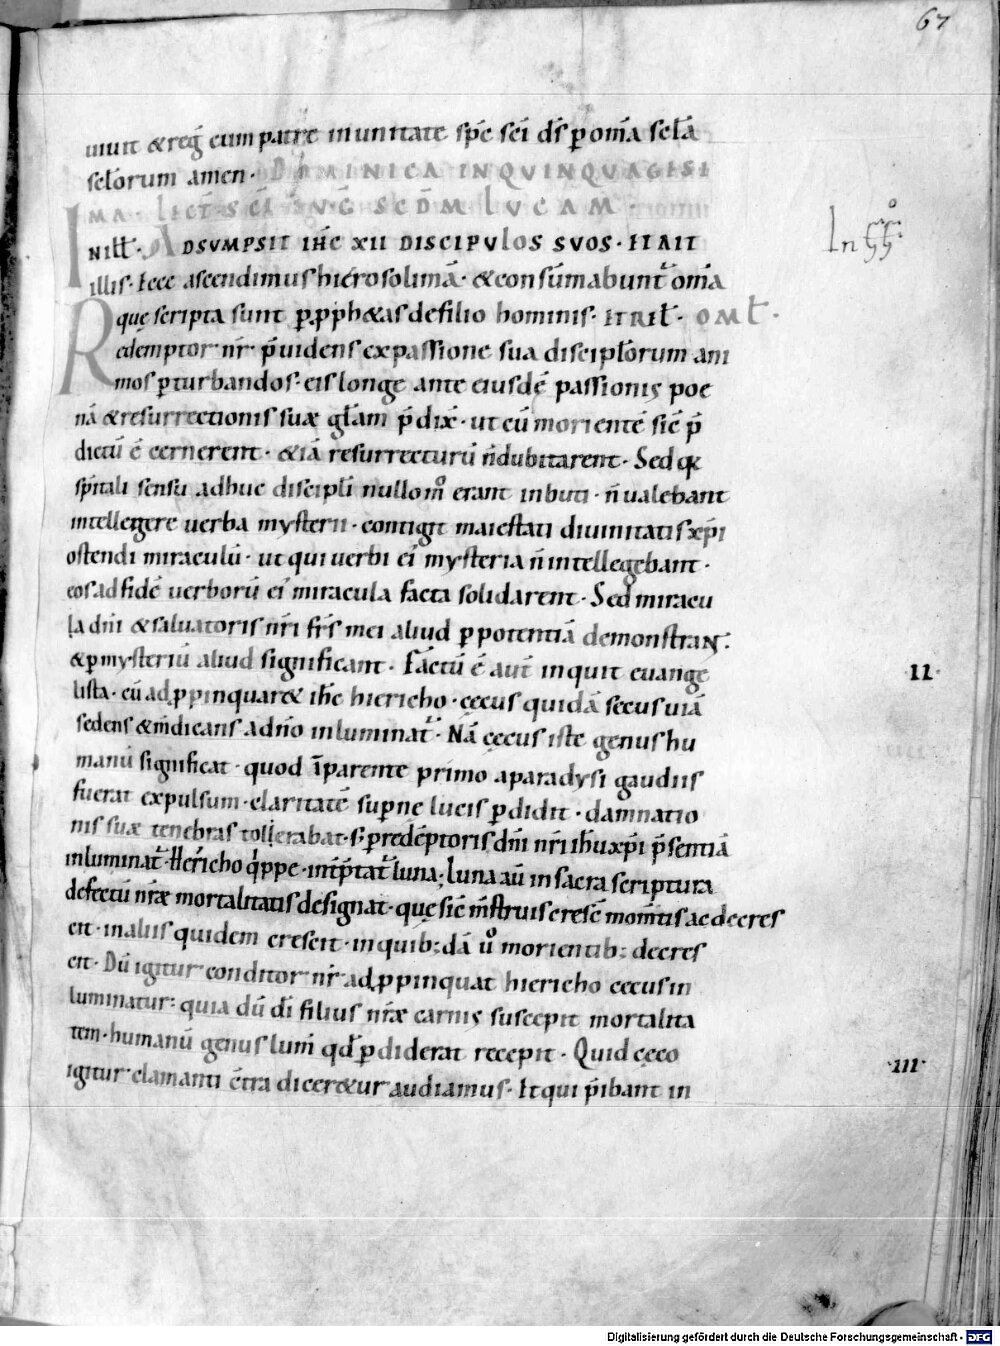 67
uiuit & reg̃ cum patre in unitate sp̄c sc̄i ds̄ p om̄ia sc̄la
sc̄lorum amen · DOMINICA IN QVINQVAGESI
MA · LECT · SC̄I EVG̃ SECDM̄ LVCAM ·
IN ILL̄ · ADSVMPSIT IH̄C XII DISCIPVLOS SVOS · ET AIT
Ln̄
illis · Ecce ascendimus hierosolimā · & consūmabunt̄ om̄ia
quę scripta sunt p pph&as de filio hominis · ET REL̄ · OML̄ ·
Redemptor nr̄ · p̄uidens ex passione sua discipl̄orum ani
mos pturbandos · eis longe ante eiusdē passionis poe
nā & resurrectionis suæ gl̄am p̄dix̄ · ut cū morientē sic̄ p̄
dictū ē cernerent · & iā resurrecturū n̄ dubitarent · Sed q̄a
sp̄itali sensu adhuc discipl̄i nullom̊ erant inbuti · n̄ ualebant
intellegere uerba mysterii · contigit maiestati diuinitatis xp̄i
ostendi miraculū · ut qui uerbi ei̓ mysteria n̄ intellegebant ·
eos ad fidē uerborū ei̓ miracula facta solidarent · Sed miracu
la dn̄i & saluatoris nr̄i fr̄s mei aliud p potentiā demonstrant ·
& p mysteriū aliud significant · Factū ē aut̄ inquit euange
II
lista · cū adppinquar& ih̄c hiericho · cęcus quidā secus uiā
sedens & m̄dicans a dn̄o inluminat̄ · Nā cęcus iste genus hu
manū significat · quod īparente primo a paradysi gaudiis
fuerat expulsum · claritatē supernę lucis pdidit · damnatio
nis suæ tenebras tollerabat · s; p redēptoris dn̄i nr̄i ih̄u xp̄i p̄sentiā
inluminat̄ · Hiericho q̓ppe · int̄p̄tat̄ luna; Luna aū in sacra scriptura
defectū nr̄æ mortalitatis designat · quę sic̄ m̄struis cresc̄ mom̄tis ac decres
cit · in aliis quidem crescit · in quib; dā ů morientib; decres
cit · Dū igitur conditor nr̄ adppinquat hiericho cęcus in
luminatur: quia dū dī filius nr̄æ carnis suscepit mortalita
tem · humanū genus lum̄ qd̄ pdiderat recepit · Quid cęco
III
igitur clamanti c̄tra dicer&ur audiamus · Et qui p̄ibant in
Digitalisierung gefördert durch die Deutsche Forschungsgemeinschaft - DFG